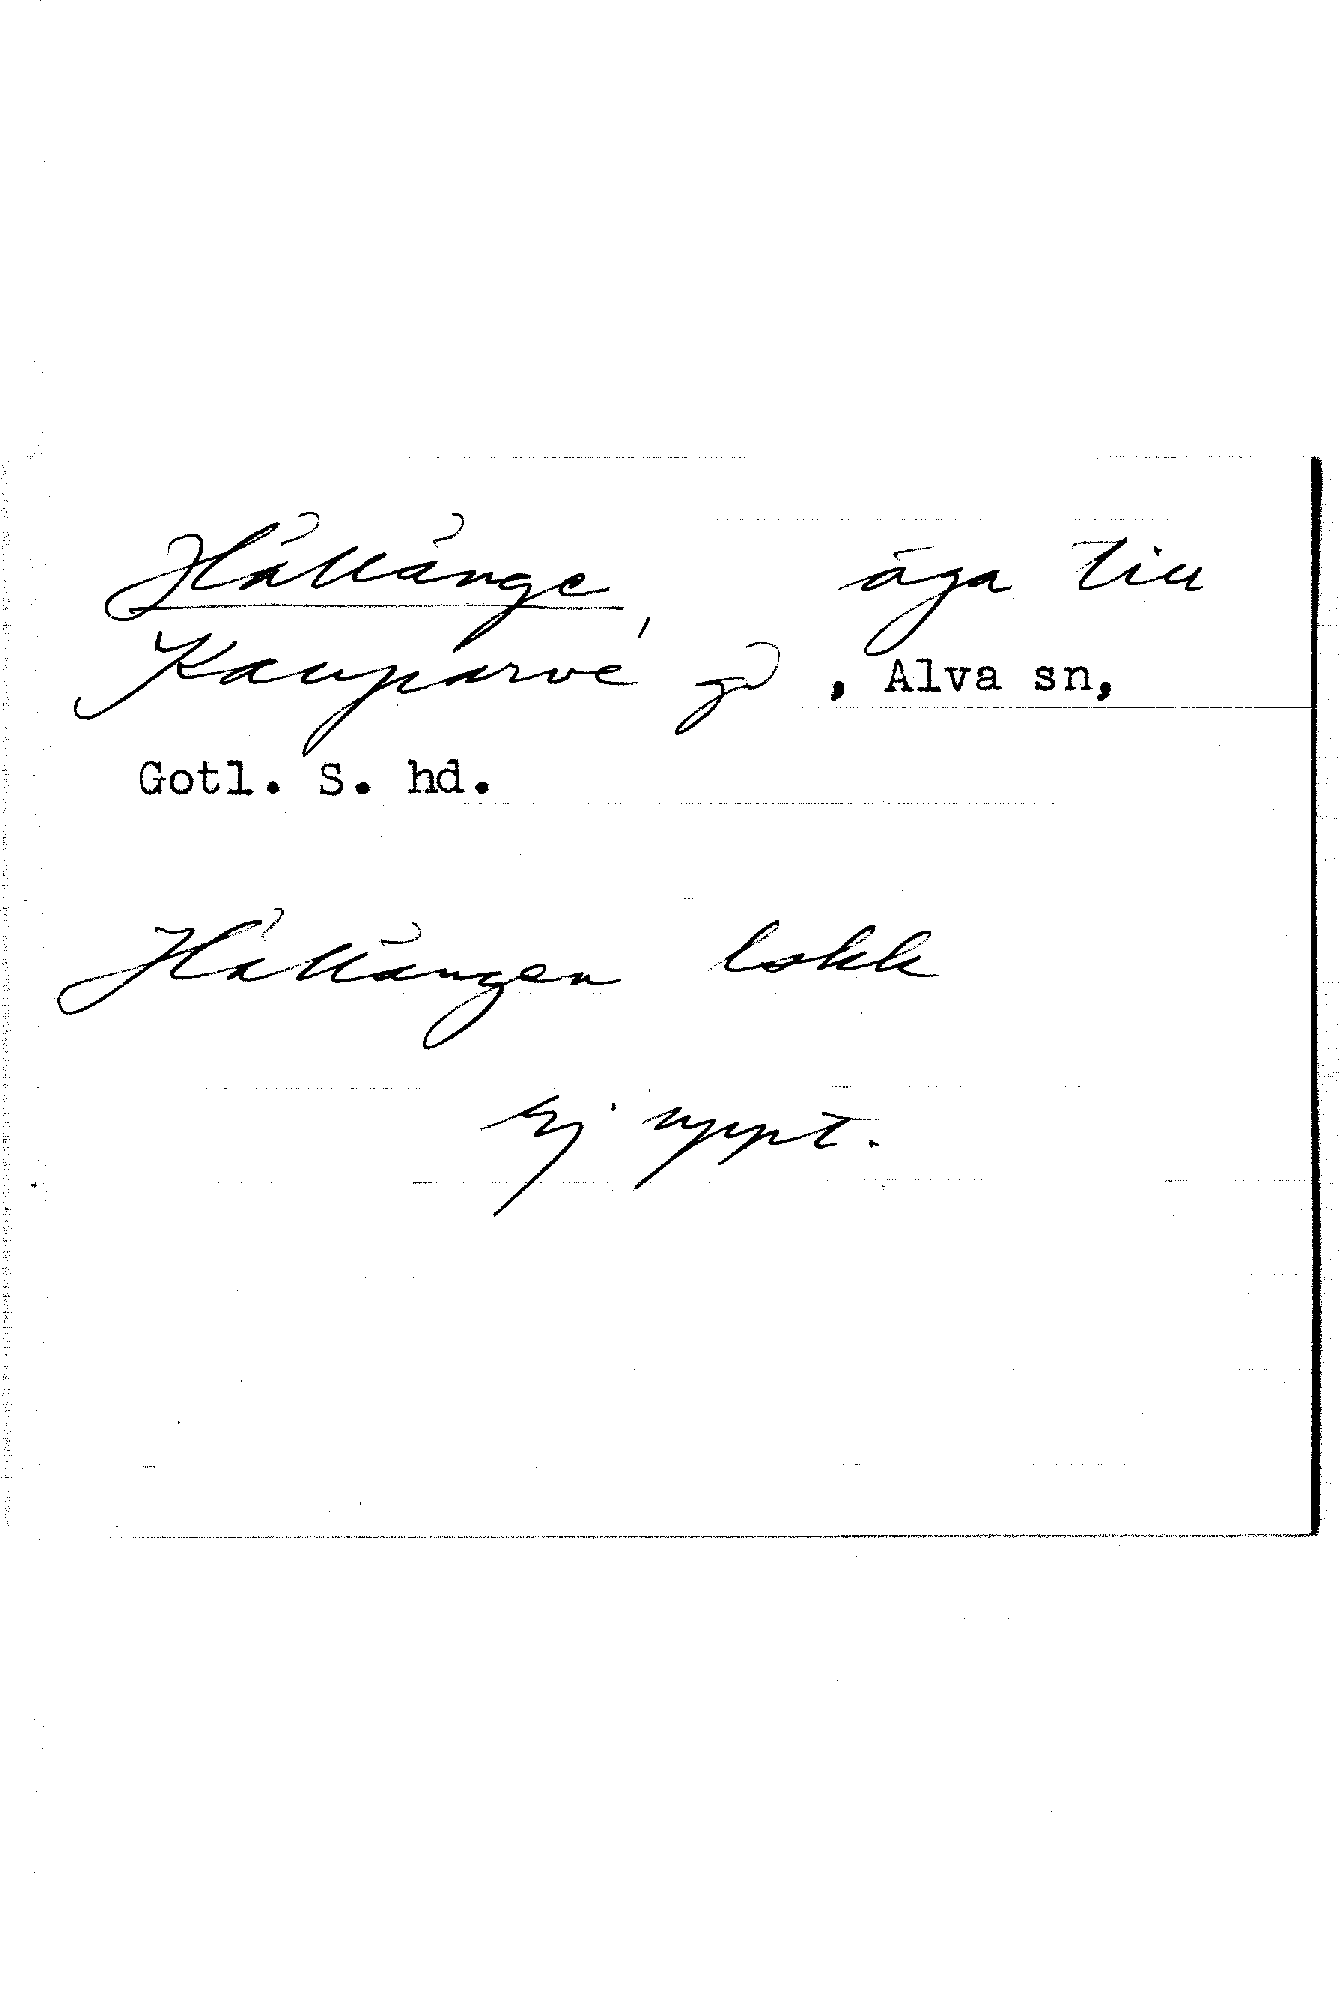 Hällänge, äga till
Kauparve gd, Alva sn,
Gotl. S. hd.
Hällängen lokk
Ej uppt.